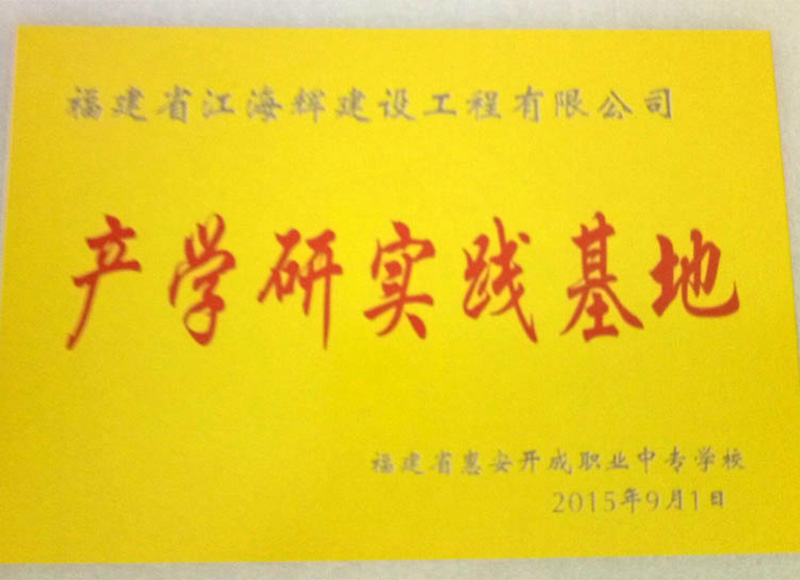 福建省江海辉建设工程有限公司
产学研实践基地
福建省惠安开成职业中专学校
2015年9月1日